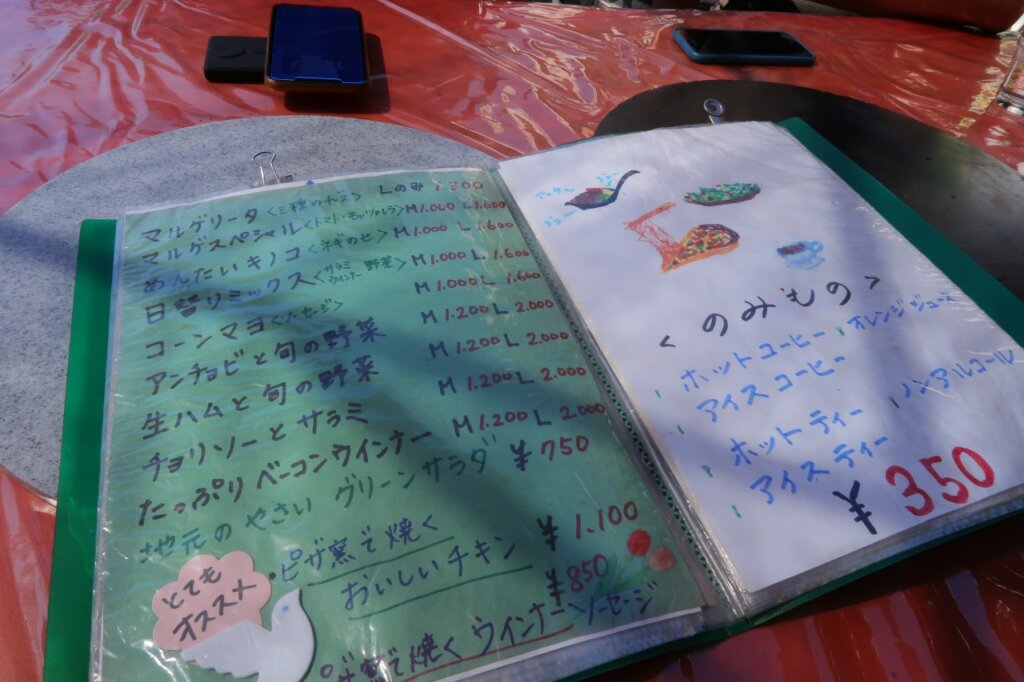 マルゲリータ <三種のチーズ> Lのみ 1.800
マルゲスペシャル <トマト・モッツァレラ> M1.000 L1.600
めんたいキノコ <ネギのせ> M1.000 L1.600
日替リミックス <サラミ ウインナー 野菜> M1.000 L1.600
コーンマヨ M1.000 L1.600
アンチョビと旬の野菜 M1.200 L2.000
生ハムと旬の野菜 M1.200 L2.000
チョリソーとサラミ M1.200 L2.000
たっぷりベーコンウインナー M1.200 L2.000
地元のやさいグリーンサラダ ¥750
・ピザ窯で焼く
おいしいチキン ¥1.100
¥850
ピザ窯で焼くウインナーソーセージ
とても
オススメ
<のみもの>
ホットコーヒー オレンジジュース
アイスコーヒー
ホットティー ノンアルコール
アイスティー
¥350